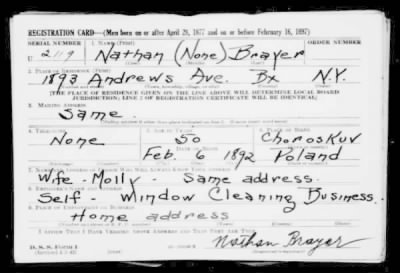 REGISTRATION CARD—(Men born on or after April 28, 1877 and on or before February 16, 1897)
SERIAL NUMBER 1. NAME (Print) ORDER NUMBER
U Nathan (None) Brayer
2. PLACE OF RESIDENCE (Print)
1893 Andrews Ave. Bx N.Y.
[THE PLACE OF RESIDENCE GIVEN ON THE LINE ABOVE WILL DETERMINE LOCAL BOARD
JURISDICTION; LINE 2 OF REGISTRATION CERTIFICATE WILL BE IDENTICAL]
3. MAILING ADDRESS
Same.
4. TELEPHONE 5. AGE IN YEARS 6. PLACE OF BIRTH
None 50 Choroskuv
DATE OF BIRTH
Feb. 6 1892 Poland
7. NAME AND ADDRESS OF PERSON WHO WILL ALWAYS KNOW YOUR ADDRESS
Wife - Molly - Same address.
8. EMPLOYER'S NAME AND ADDRESS
Self - Window Cleaning Business.
9. PLACE OF EMPLOYMENT OR BUSINESS
Home address
I AFFIRM THAT I HAVE VERIFIED ABOVE ANSWERS AND THAT THEY ARE TRUE.
D. S. S. Form 1
Nathan Brayer